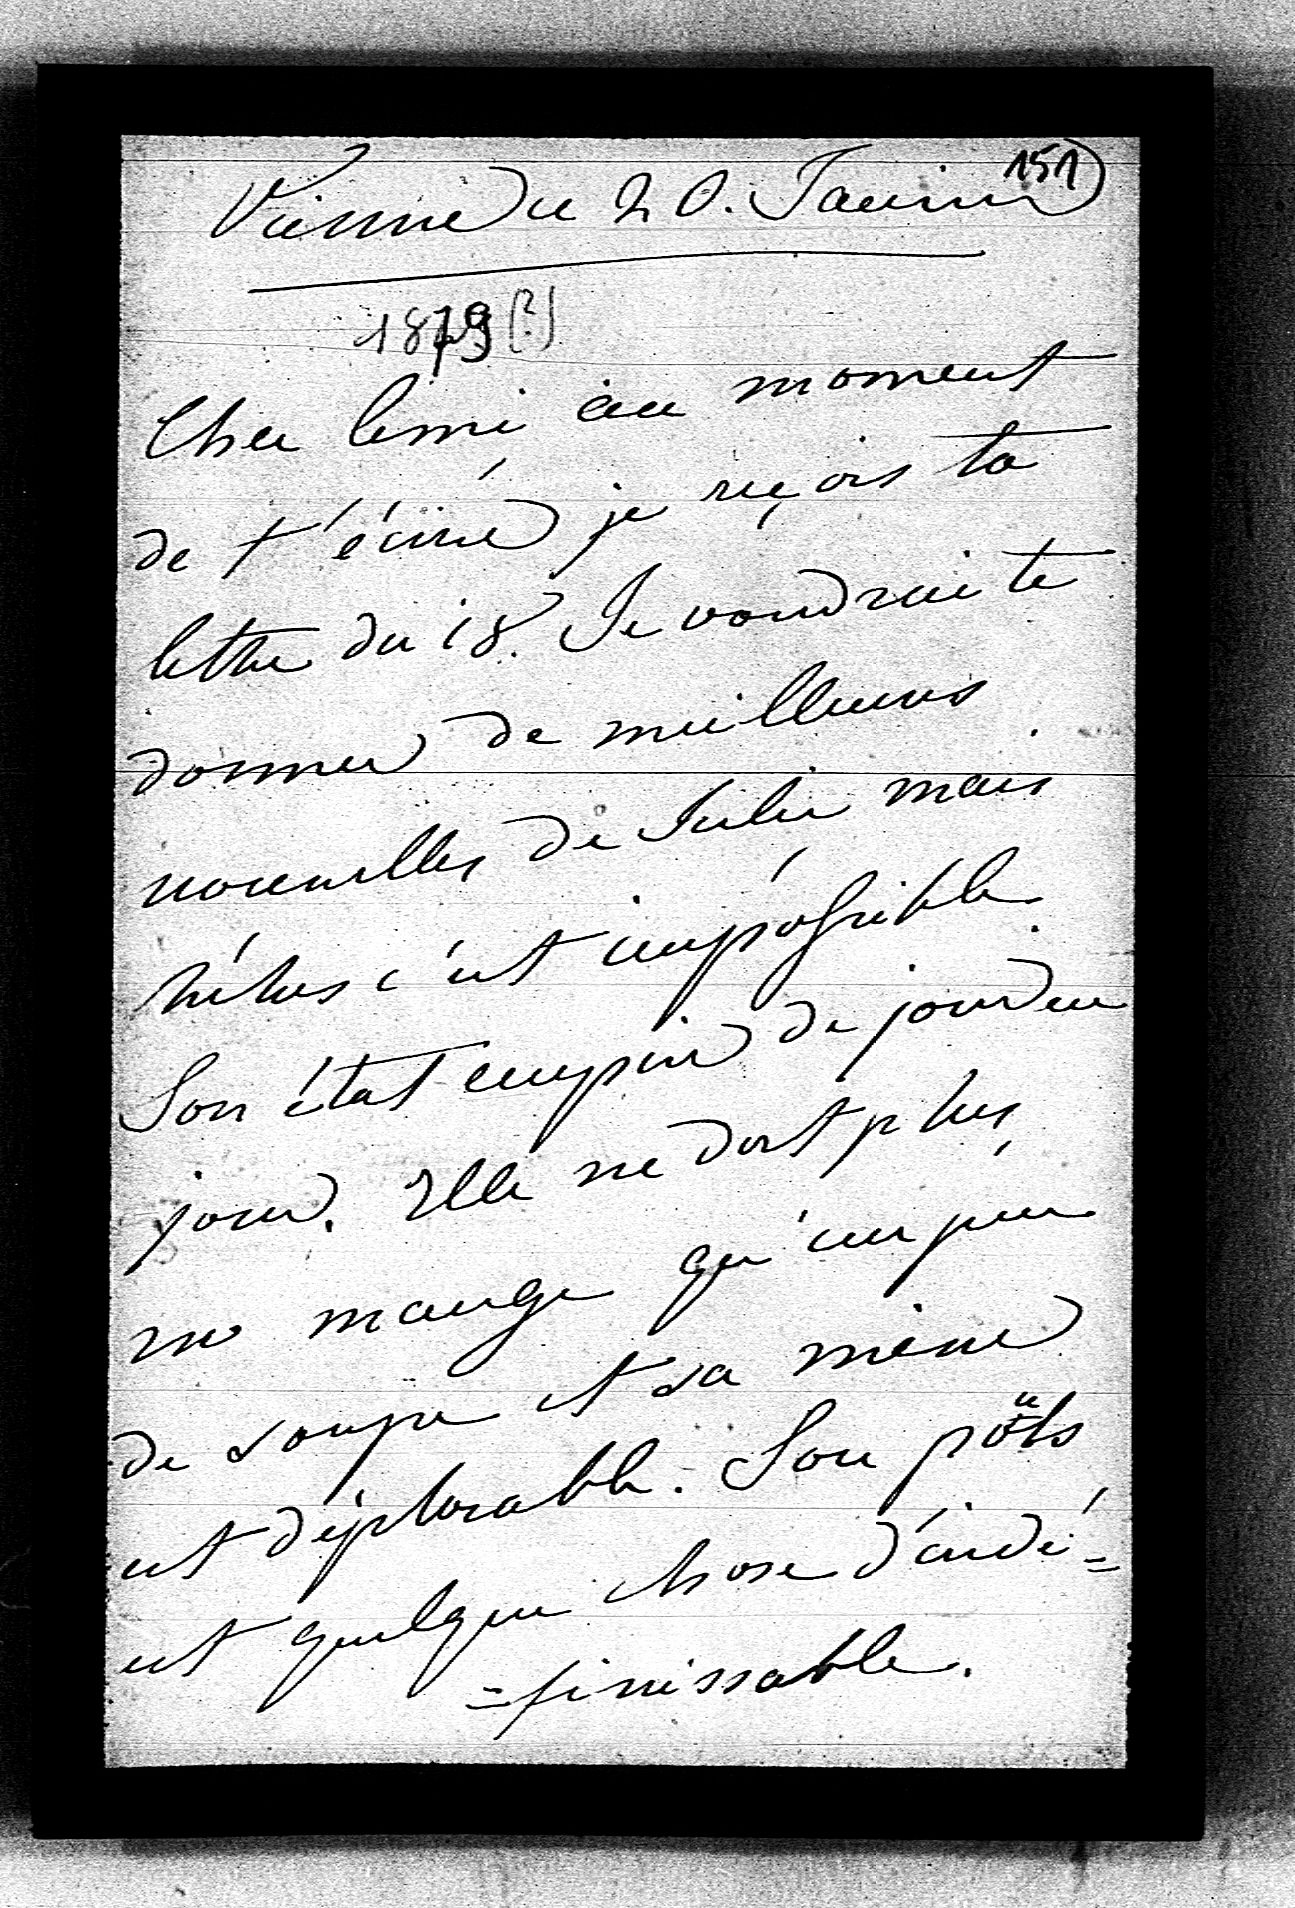 151
Vienne ce 20. Janvier
1879 (?)
Cher Ami au moment
de t'écrire je reçois ta
lettre du 18. Je voudrai te
donner de meilleures
nouvelles de Julie mais
hélas c'est impossible.
Son état empire de jour en
jour. Elle ne dort plus,
ne mange qu'un peu
de soupe et sa mine
est déplorable. Son poûls
est quelque chose d'indé=
=finissable.